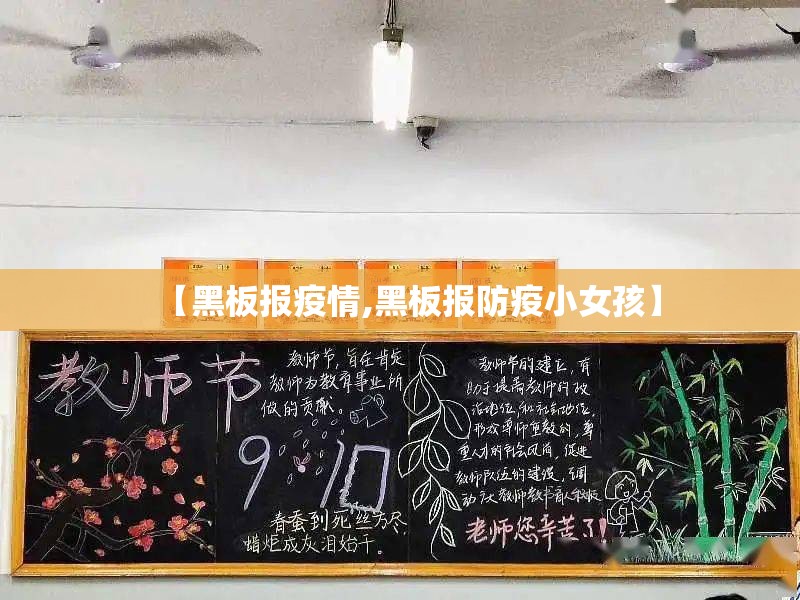 【黑板报疫情,黑板报防疫小女孩】
教师节
教师节，旨在肯定
教师为教育事业所
做的贡献。
9 10
春蚕到死丝方尽，
蜡炬成灰泪始干。
教师节的建立，有
助于提高教师的政
治地位,和社会地位。
形成尊师重教的,尊
重人才的社会风尚，促进
教师队伍的建设，调
动广大教师教书育人
老师您辛苦了!